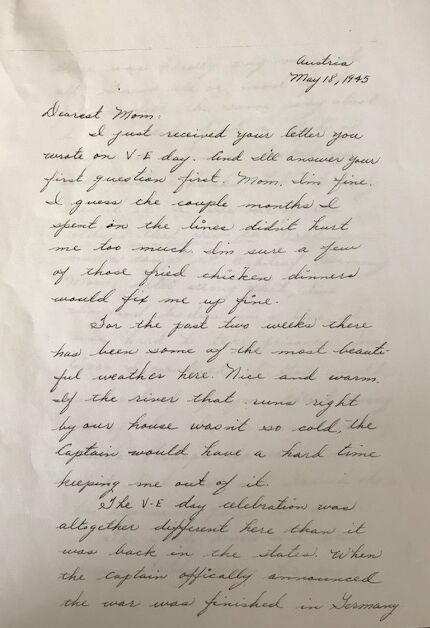 Austria
May 18, 1945
Dearest Mom:
I just received your letter you
wrote on V-E day. And I'll answer your
first question first. Mom, I'm fine.
I guess the couple months I
spent on the lines didn't hurt
me too much. I'm sure a few
of those fried chicken dinners
would fix me up fine.
For the past two weeks there
has been some of the most beauti-
ful weather here. Nice and warm.
If the river that runs right
by our house wasn't so cold, the
Captain would have a hard time
keeping me out of it.
The V-E day celebration was
altogether different here than it
was back in the states. When
the captain offically announced
the war was finished in Germany